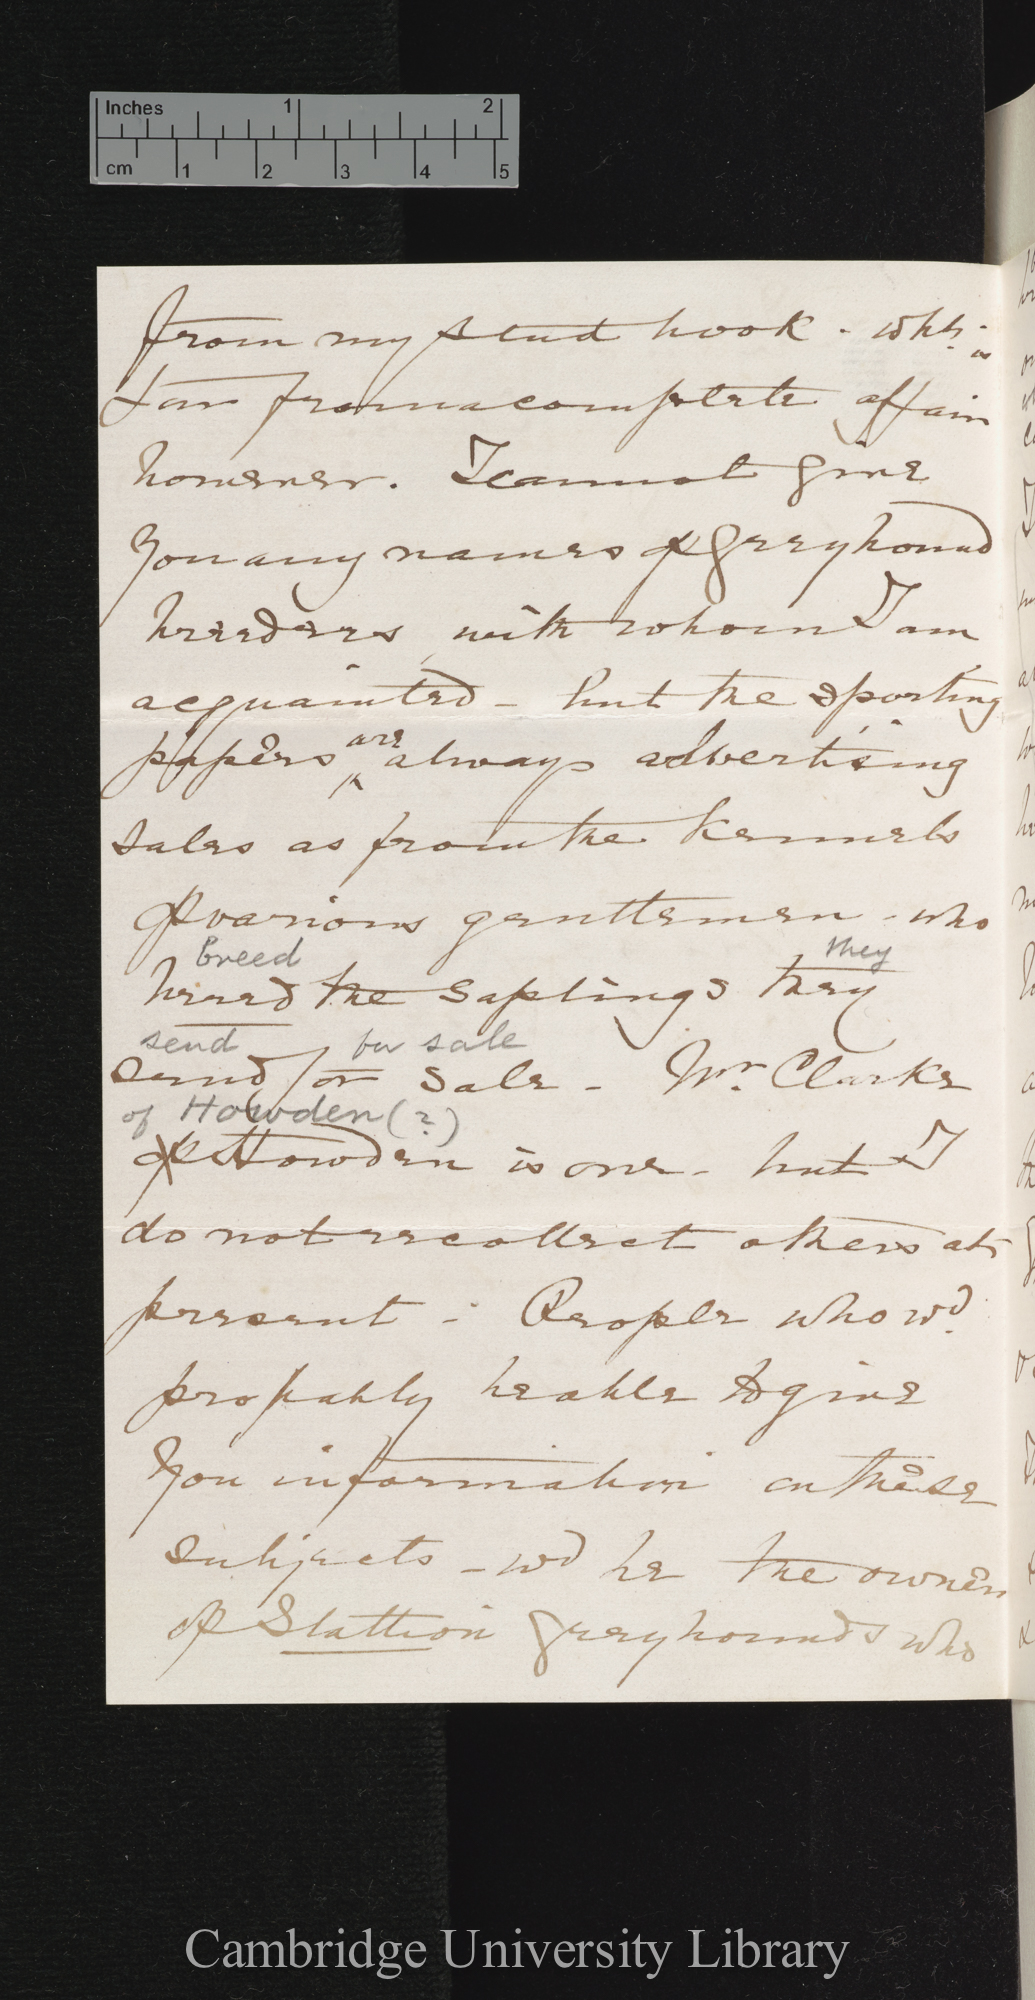 Inches 1 2
cm 1 2 3 4 5
from my stud book - whh. is
far from a complete affair
however. I cannot give
you any names of greyhound
breeders with whom I am
acquainted - but the sporting
papers are always advertising
sales as from the kennels
of various gentlemen - who
breed they
breed the saplings they
send for sale
send for sale - Mr. Clarke
of Howden (?)
of Howden is one - but I
do not recollect others at
present - People who wd.
probably be able to give
you information on these
subjects - wd be the owners
of Stallion greyhounds who
Cambridge University Library